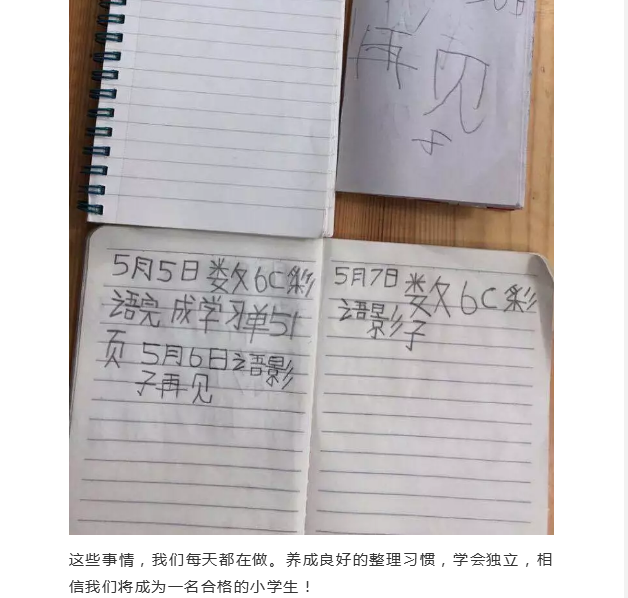 再见
5月5日数6C彩
语完成学习单51
页 5月6日语影
子再见
5月7日数6C彩
语影子
这些事情，我们每天都在做。养成良好的整理习惯，学会独立，相
信我们将成为一名合格的小学生！